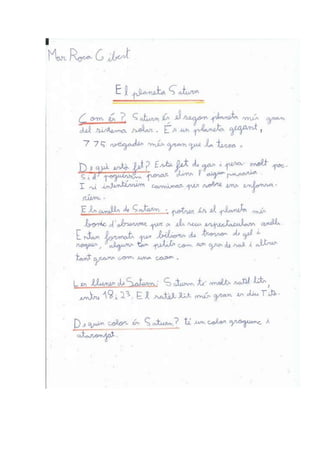 Mar Roca Gibert
El planeta Saturn
Com és? Saturn és el segon planeta més gran
del sistema solar. És un planeta gegant,
775 vegades més gran que la terra.
De què està fet? Esta fet de gas i pesa molt poc.
Si el poguéssim posar dins l'aigua
I si intentéssim caminar per sobre ens enfonsa-
ríem.
Els anells de Saturn: potser és el planeta més
bonic d'observar per a els seus espectaculars anells.
Estan formats per bilions de trossos de gel i
roques, alguns tan petits com un gra de sal i altres
tant grans com una casa.
Les llunes de Saturn: Saturn té molts satèl·lits,
entre 18 i 23. El satèl·lit més gran es diu Tità.
De quin color és Saturn? té un color groguenc i
ataronjat.